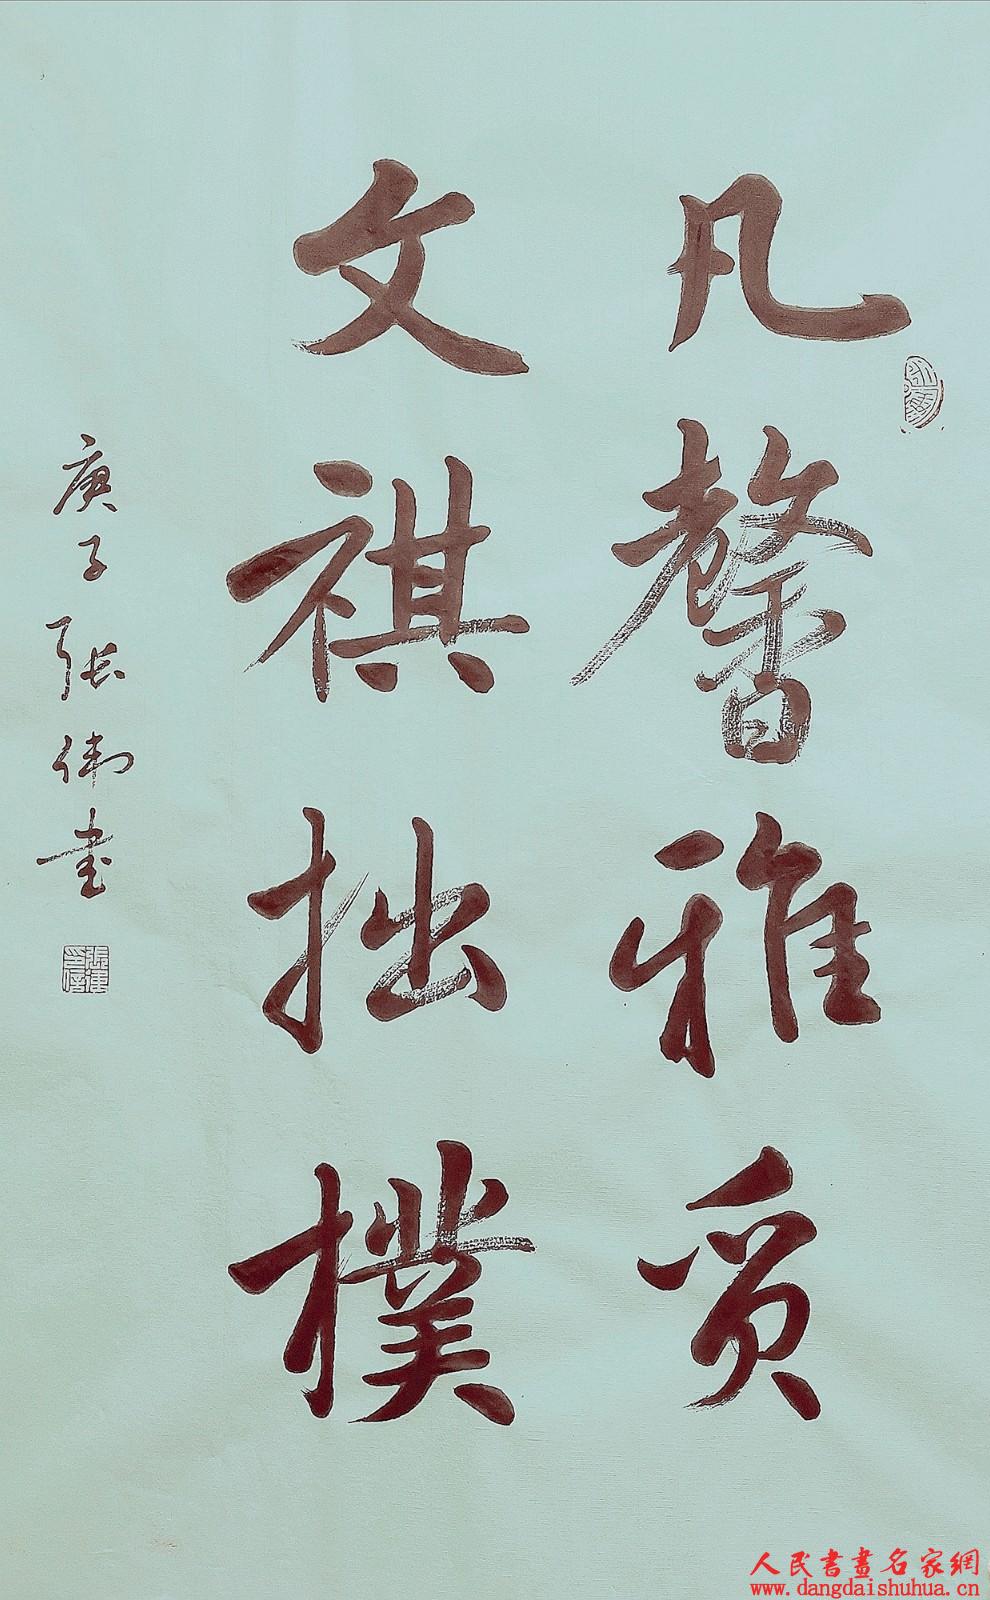 凡馨雅质
文祺拙樸
庚子張偉書
人民書畫名家網
www.dangdaishuhua.cn